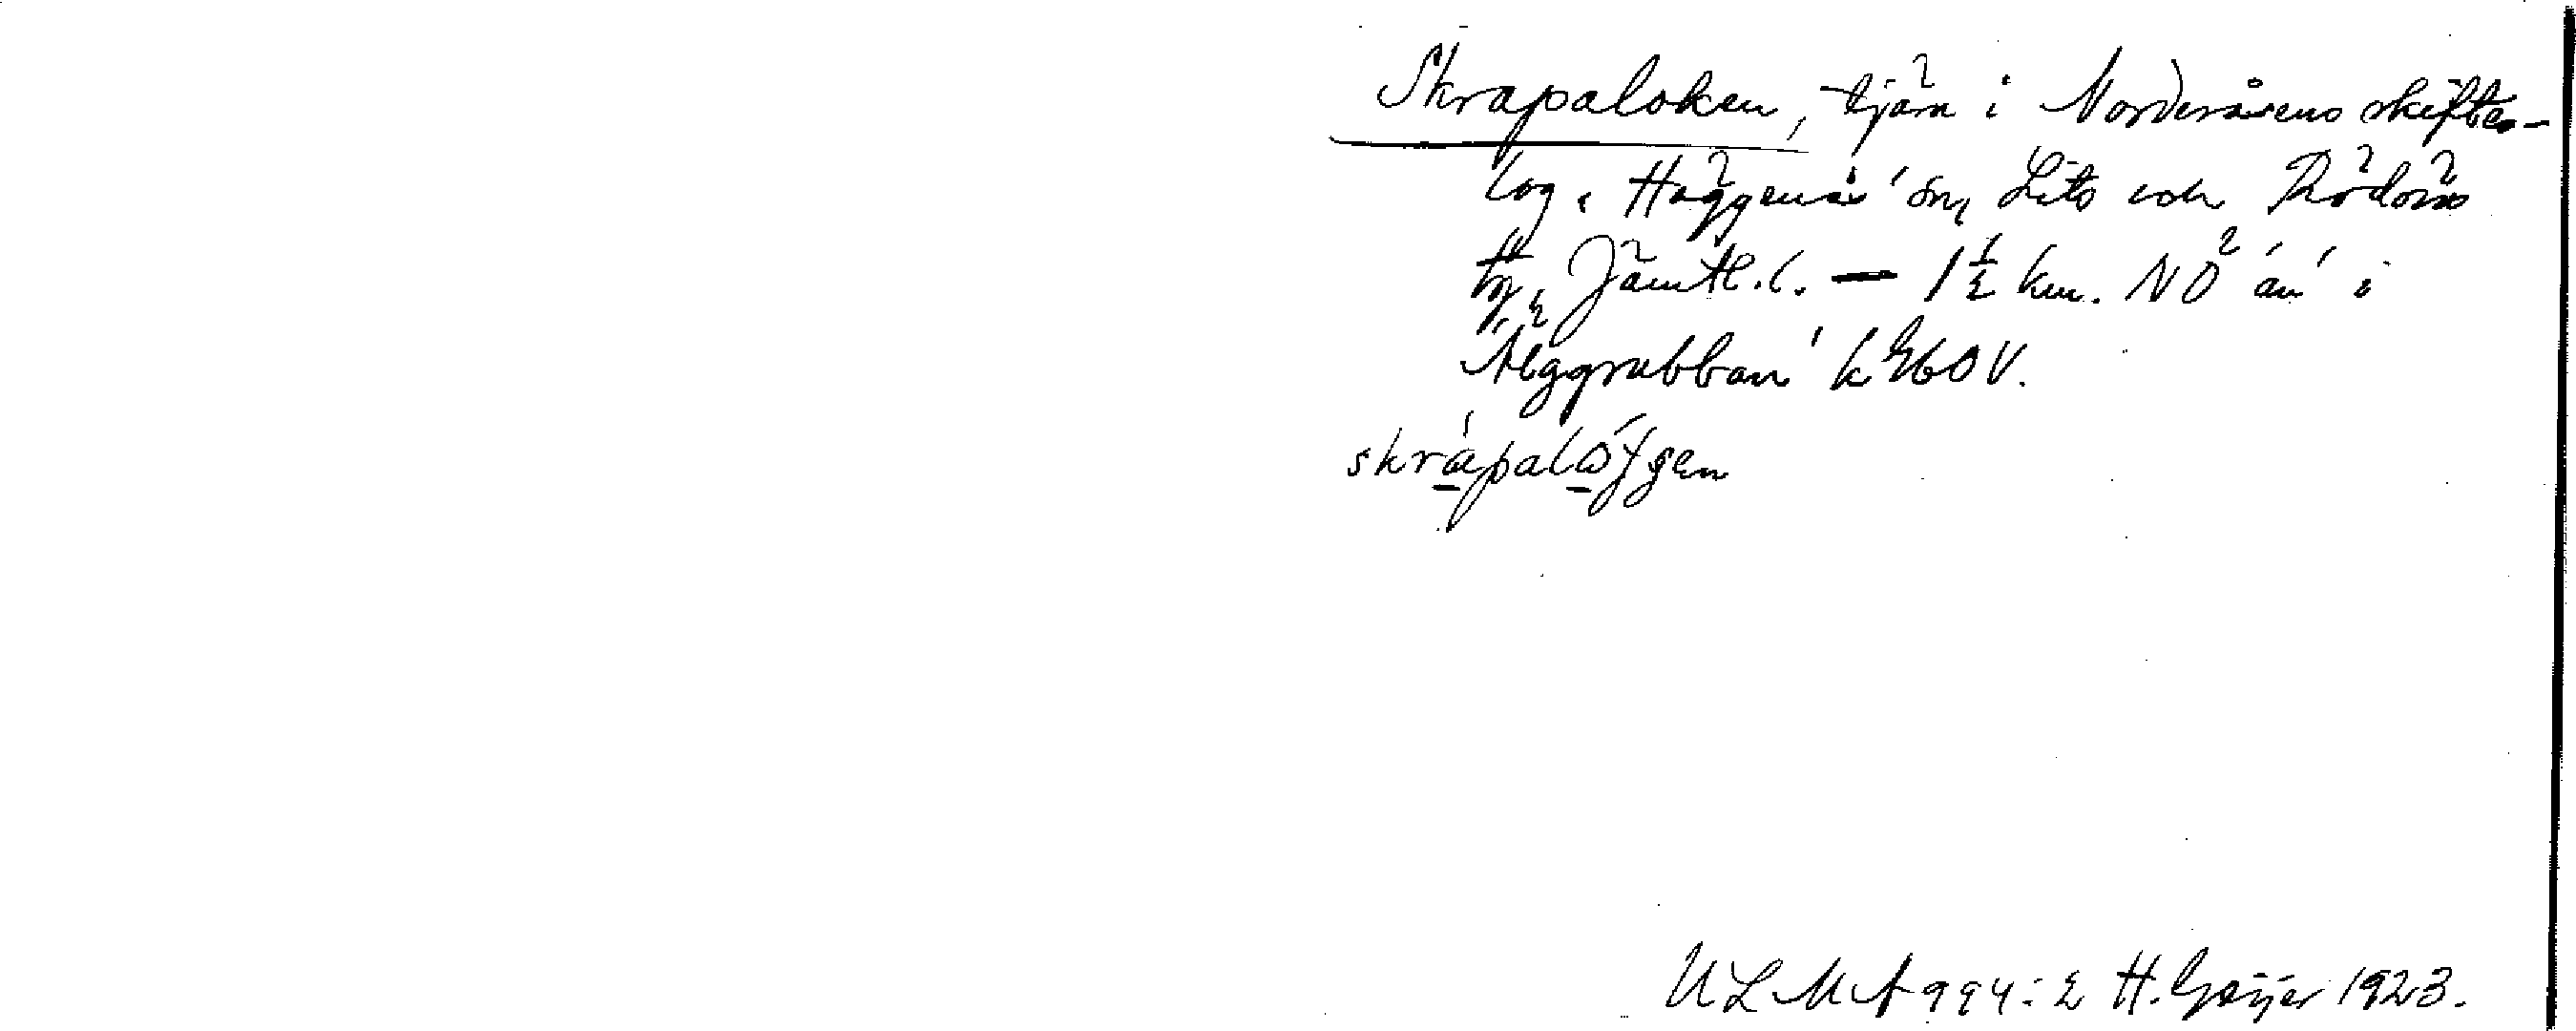 Skrapaloken, tjärn i Norderåsens skiftes-
lag, Häggenås' sn, Lits och Rödöns
tg, Jämtl. l. — 1½ km. NO än i
Älggrubban' k 960 V.
skrápalófgen
ULMA 994:2 H. Geijer 1923.